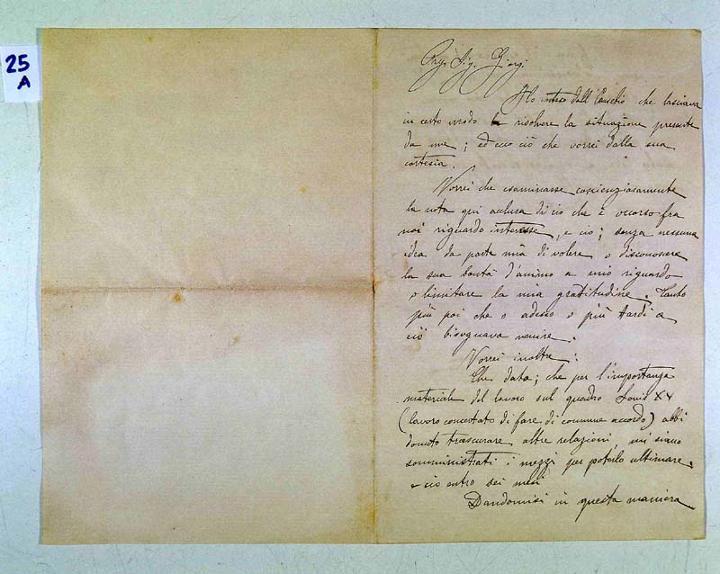 25
A
Preg. Sig. Giorgi
Ho inteso dall' che lasciava
in certo modo risolvere la situazione presente
da me; ed ecco ciò che vorrei dalla sua
cortesia.
Vorrei che esaminasse coscienziosamente
la nota qui acclusa di ciò che è occorso fra
noi riguardo interesse, e ciò; senza nessuna
idea da parte mia di volere o disconoscere
la sua bontà d'animo a mio riguardo
o limitare la mia gratitudine. Tanto
più poi che o adesso o più tardi a
ciò bisognava venire.
Vorrei inoltre:
Che data; che per l'importanza
materiale del lavoro sul quadro Louis XV
(lavoro concertato di fare di comune accordo) abbi
dovuto trascurare altre relazioni, mi siano
somministrati i mezzi per poterlo ultimare.
e ciò entro sei mesi
Dandomisi in questa maniera